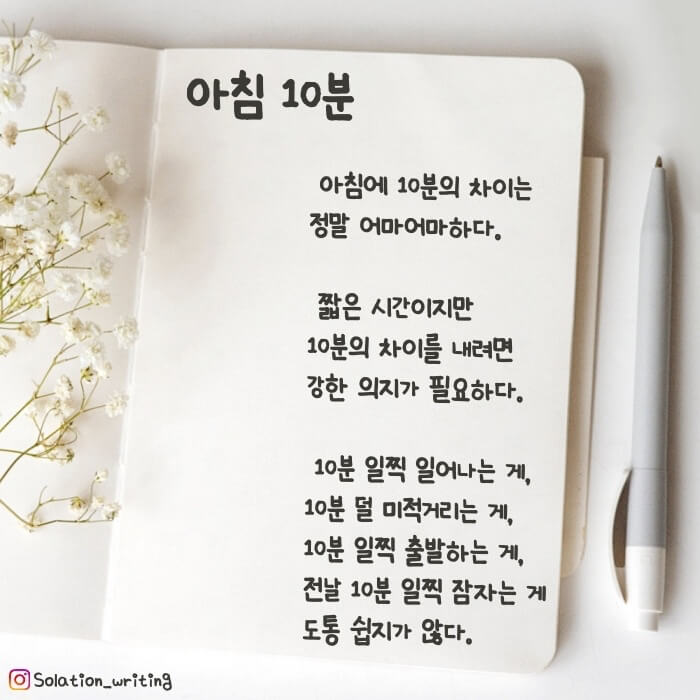 아침 10분
아침에 10분의 차이는
정말 어마어마하다.
짧은 시간이지만
10분의 차이를 내려면
강한 의지가 필요하다.
10분 일찍 일어나는 게,
10분 덜 미적거리는 게,
10분 일찍 출발하는 게,
전날 10분 일찍 잠자는 게
도통 쉽지가 않다.
Solation_writing